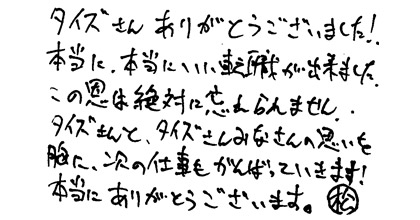 タイズさん ありがとうございました!
本当に、本当にいい転職が出来ました。
この恩は絶対に忘れられません。
タイズさんと、タイズさんみなさんの思いを
胸に、次の仕事もがんばっていきます!
本当にありがとうございます。㊗松